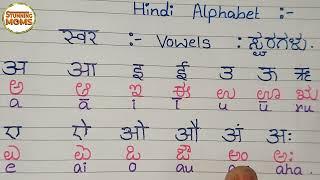 STUNNING MOMS
Hindi Alphabet :-
स्वर :- Vowels : ಸ್ವರಗಳು.
अ आ इ ई उ ऊ ऋ
ಅ ಆ ಇ ಈ ಉ ಊ ಋ
a ā i ī u ū ru
ए ऐ ओ औ अं अः
ಎ ಐ ಓ ಔ ಅಂ ಅಃ
e ai o au aha.